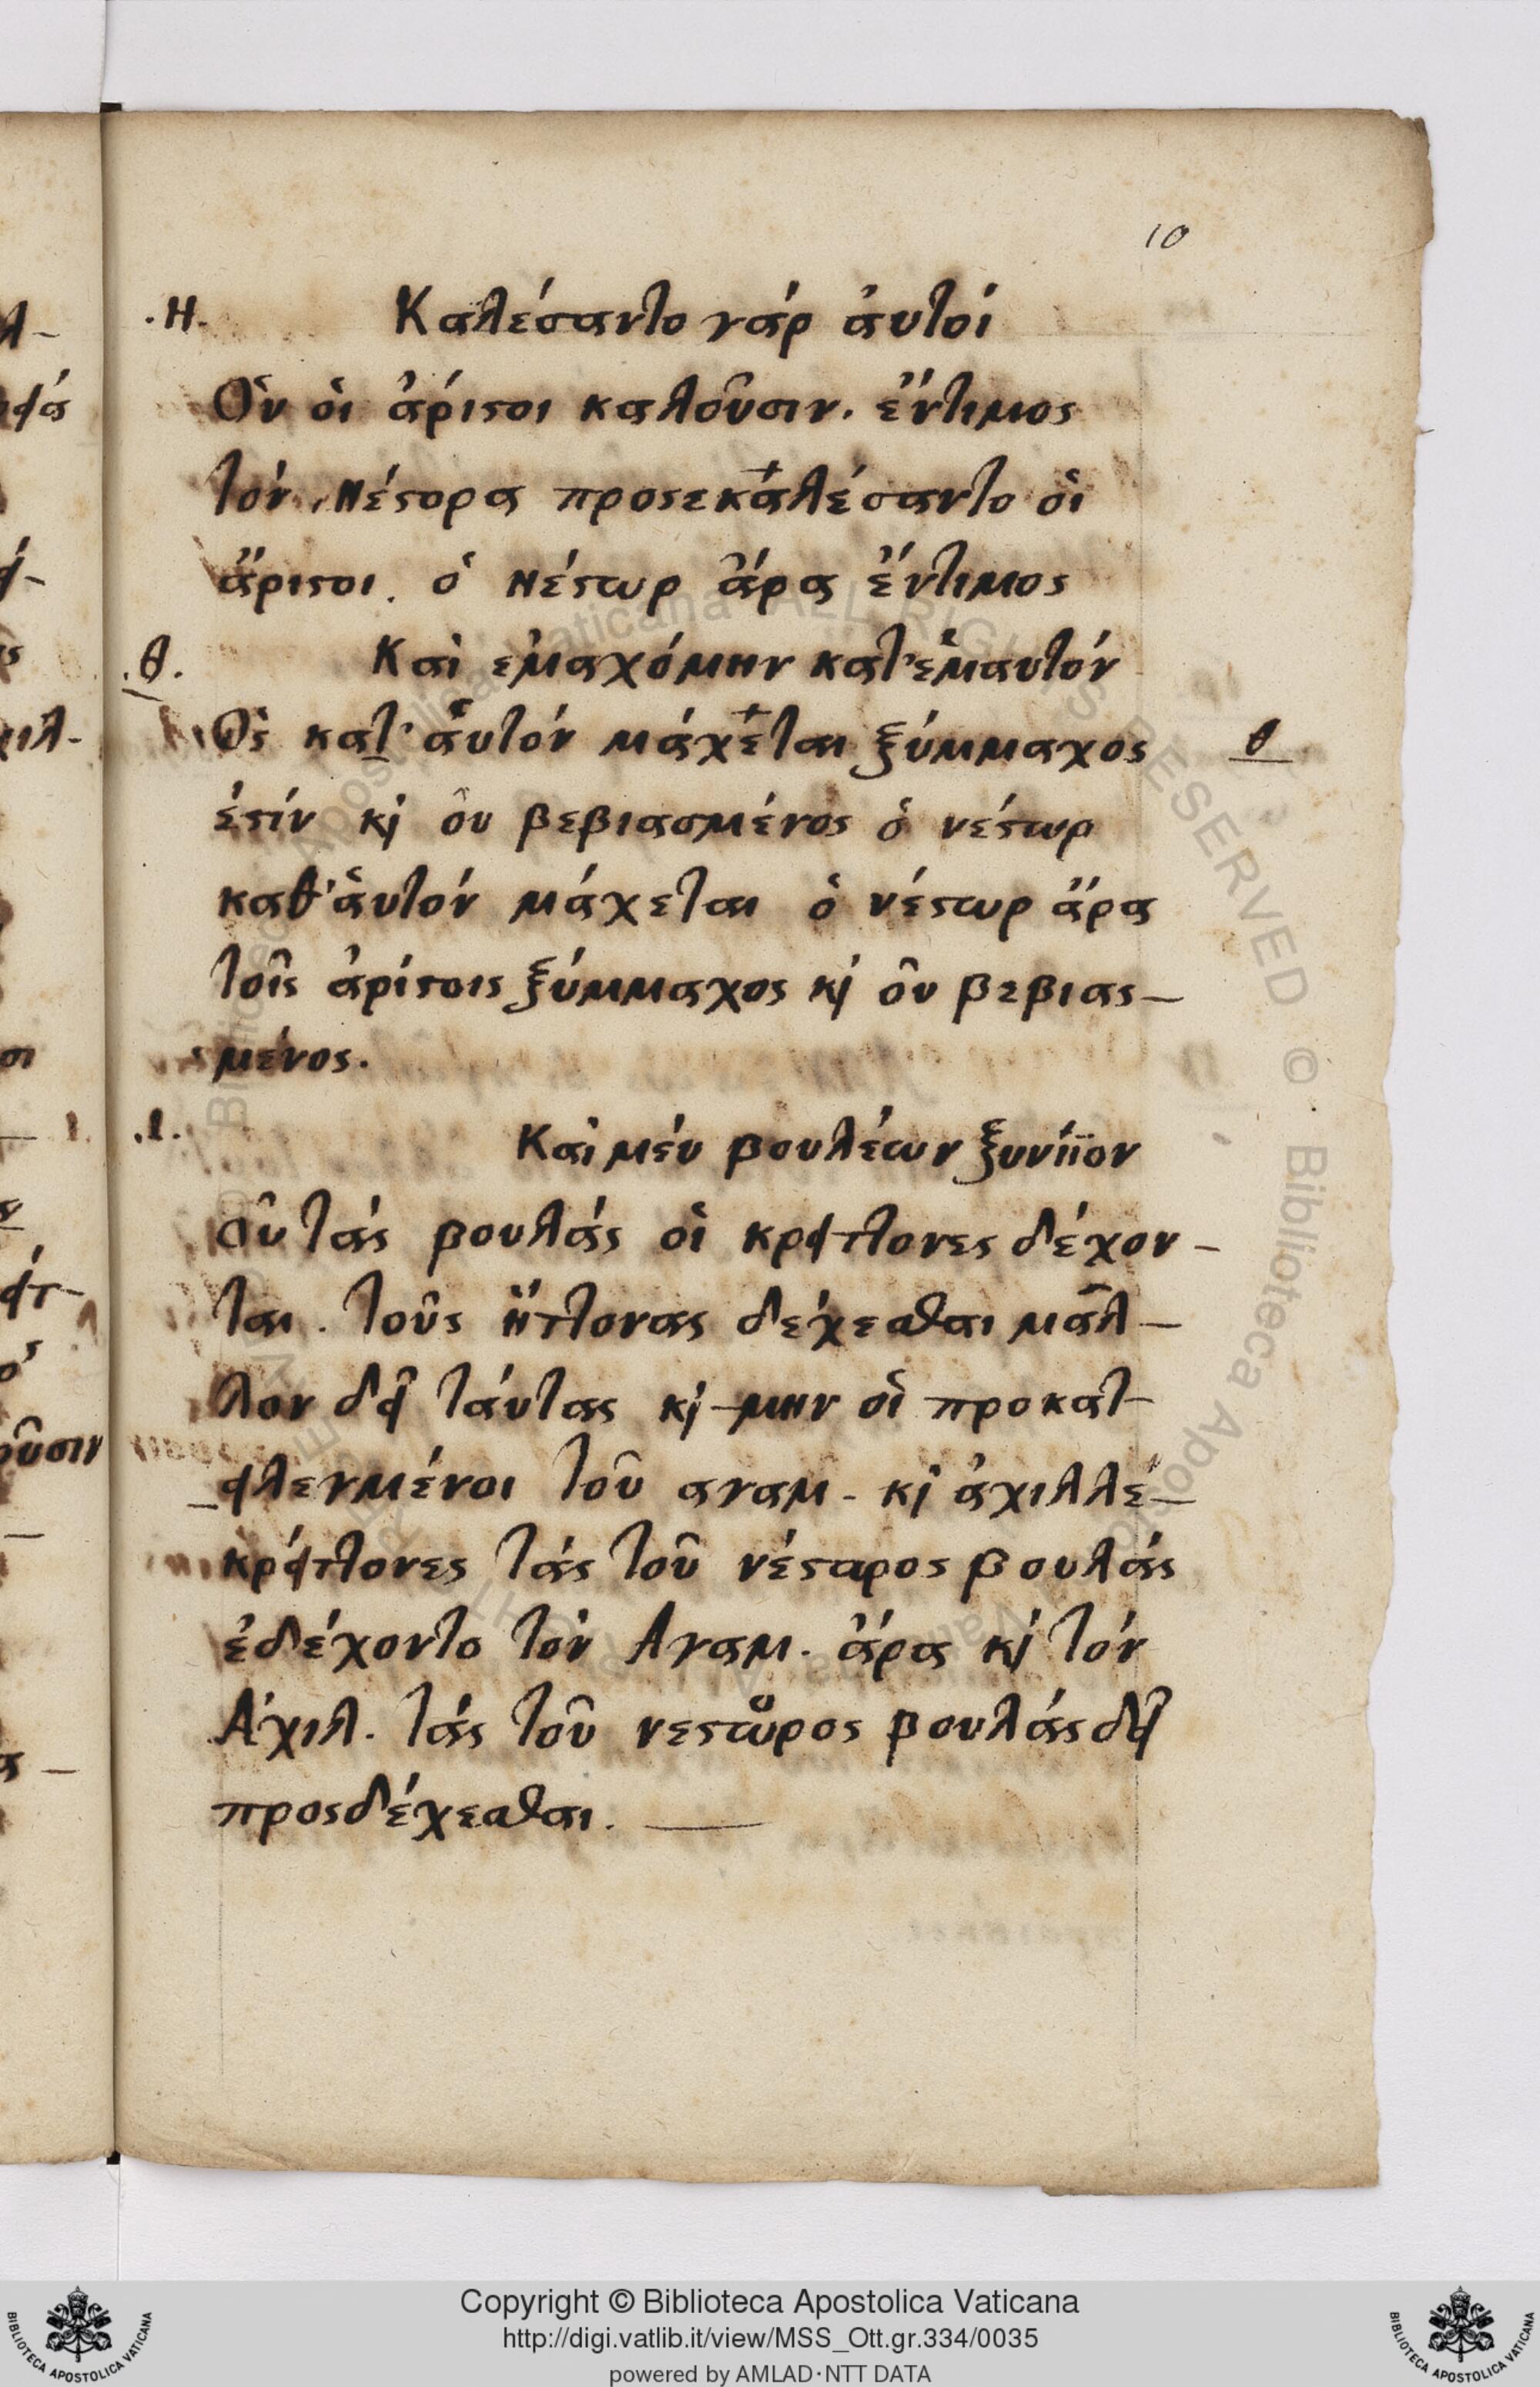 10
.Η. Καλέσαντο γάρ ἀυτοί
Ὃν ὁι ἀρίστοι καλοῦσιν. ἔντιμος
τόν Νέστορα προσεκαλέσαντο ὁι
ἄριστοι. ὁ Νέστωρ ἄρα ἔντιμος
.θ. Καὶ ἐμαχόμην κατ' ἐμαυτόν
Ὃς κατ' ἁυτόν μάχεται ξύμμαχος θ
ἐστίν κὶ ὀυ βεβιασμένος ὁ νέστωρ
καθ' ἁυτόν μάχεται ὁ νέστωρ ἄρα
τοῖς ἀρίστοις ξύμμαχος κὶ ὀυ βεβιασ-
μένος.
.Ι. Καὶ μέυ βουλέων ξυνίϊον
Ὁυ τάς βουλάς ὁι κρείττονες δέχον-
ται. τοῦς ἥττονας δέχεσθαι μᾶλ-
λον δεῖ τάυτας κὶ μην ὁι προκατ-
ειλεγμένοι τοῦ αγαμ. κὶ ἀχιλλέ-
κρείττονες τάς τοῦ νέστωρος βουλάς
ἐδέχοντο τόν Αγαμ. ἄρα κὶ τόν
Ἀχιλ. τάς τοῦ νεστωρος βουλάς δεῖ
προσδέχεσθαι.
Copyright © Biblioteca Apostolica Vaticana
http://digi.vatlib.it/view/MSS_Ott.gr.334/0035
powered by AMLAD·NTT DATA
BIBLIOTECA APOSTOLICA VATICANA
BIBLIOTECA APOSTOLICA VATICANA